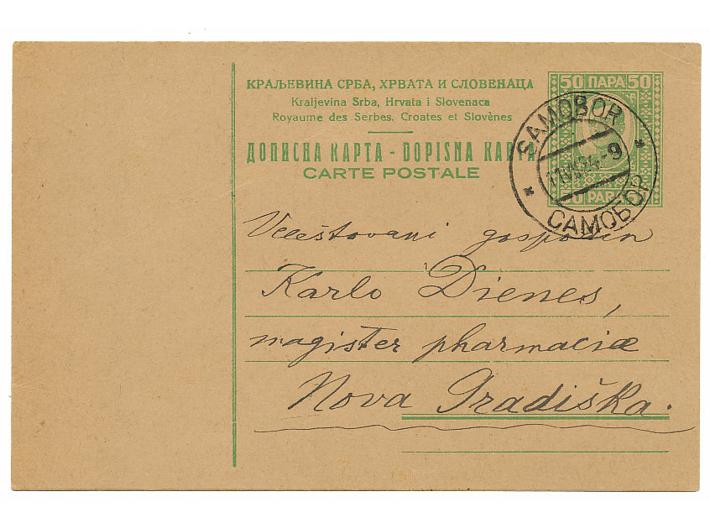 КРАЉЕВИНА СРБА, ХРВАТА И СЛОВЕНАЦА
Kraljevina Srba, Hrvata i Slovenaca
Royaume des Serbes, Croates et Slovènes
ДОПИСНА КАРТА - DOPISNA KARTA
CARTE POSTALE
50 ПАРА 50
50 PARA
SAMOBOR
САМОБОР
Veleštovani gospodin
Karlo Dienes,
magister pharmaciæ
Nova Gradiška.